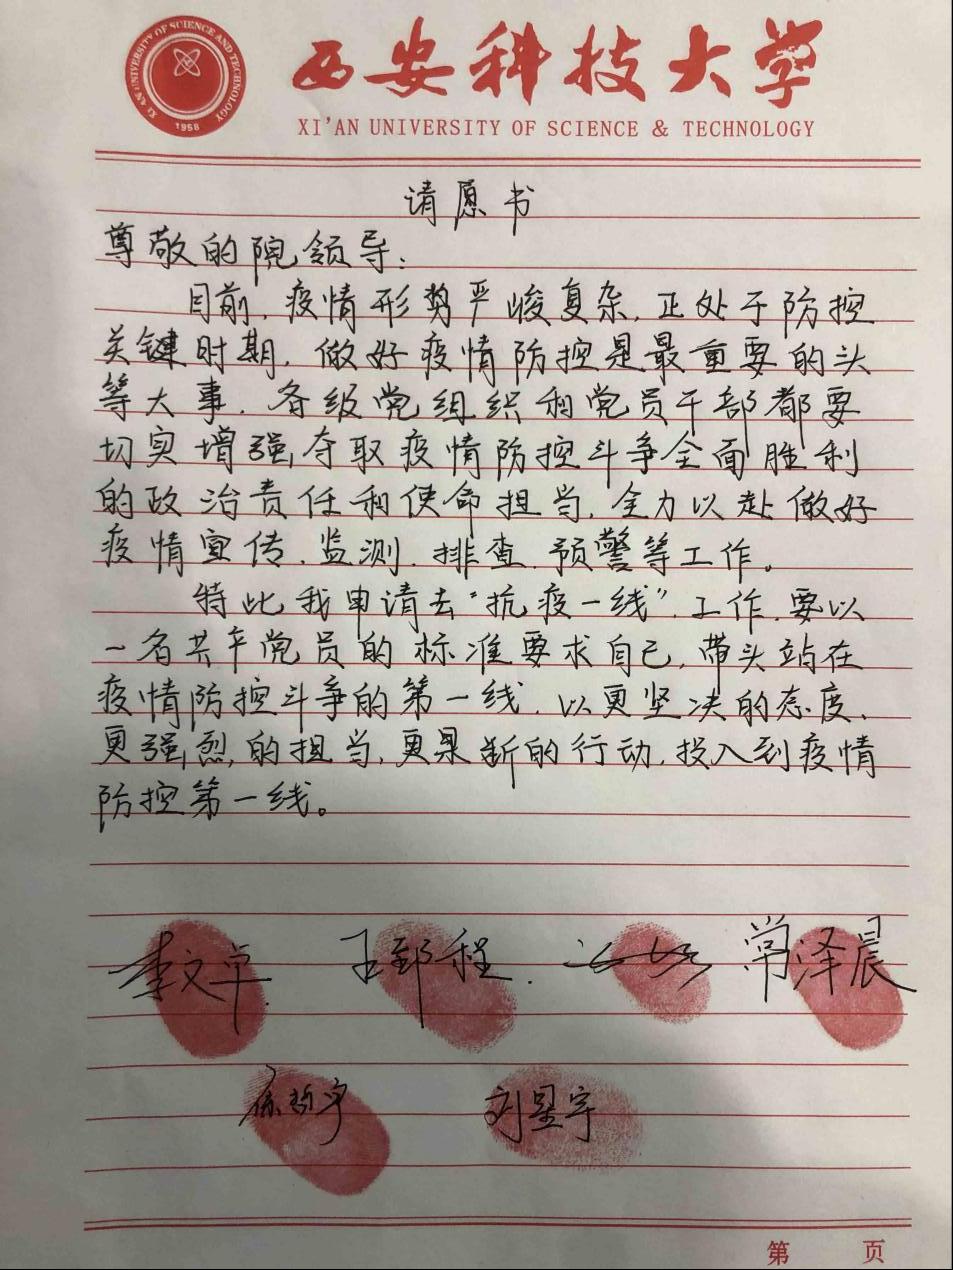 XI'AN UNIVERSITY OF SCIENCE AND TECHNOLOGY
1958
西安科技大学
XI'AN UNIVERSITY OF SCIENCE & TECHNOLOGY
请愿书
尊敬的院领导:
目前,疫情形势严峻复杂,正处于防控
关键时期,做好疫情防控是最重要的头
等大事,各级党组织和党员干部都要
切实增强夺取疫情防控斗争全面胜利
的政治责任和使命担当,全力以赴做好
疫情宣传、监测、排查、预警等工作。
特此我申请去“抗疫一线”工作,要以
一名共产党员的标准要求自己,带头站在
疫情防控斗争的第一线,以更坚决的态度,
更强烈的担当,更果断的行动,投入到疫情
防控第一线。
李文卓 王郅程 常泽晨
刘星宇
第 页